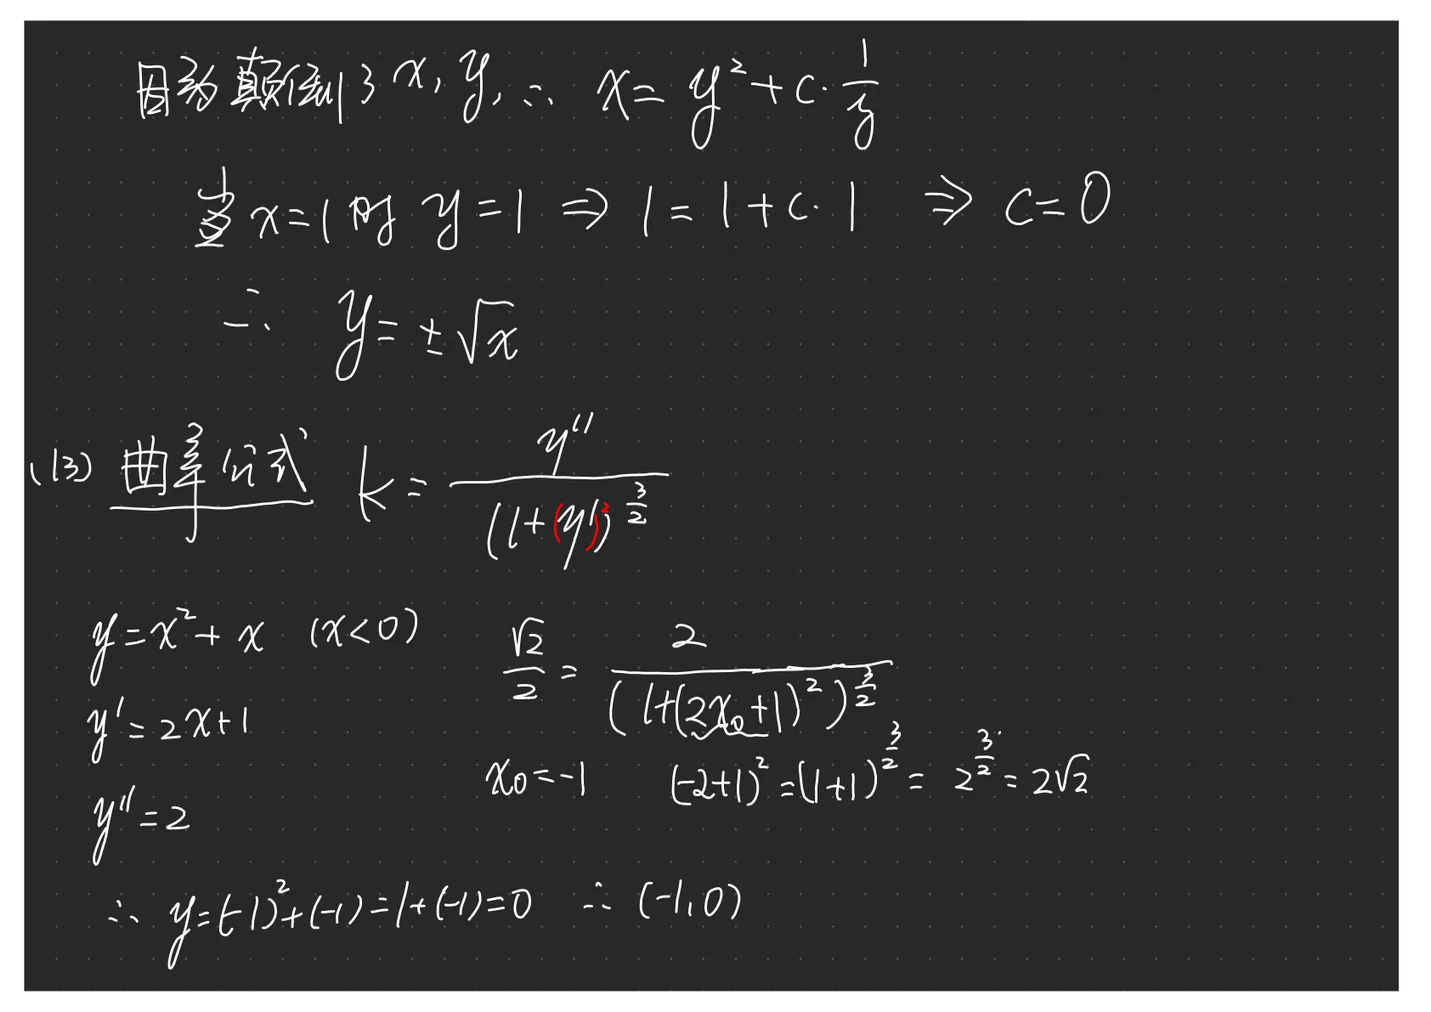 因为颠倒了 x, y, ∴ x = y² + c · 1/y
当 x=1 时 y=1 ⇒ 1 = 1 + c · 1 ⇒ c=0
∴ y = ±√x
(13) 曲率公式 k = y'' / (1+(y')²)^(3/2)
y = x² + x (x<0) √2/2 = 2 / (1+(2x₀+1)²)^(3/2)
y' = 2x+1
x₀ = -1 (-2+1)² = (1+1)^(3/2) = 2^(3/2) = 2√2
y'' = 2
∴ y = (-1)² + (-1) = 1 + (-1) = 0 ∴ (-1, 0)